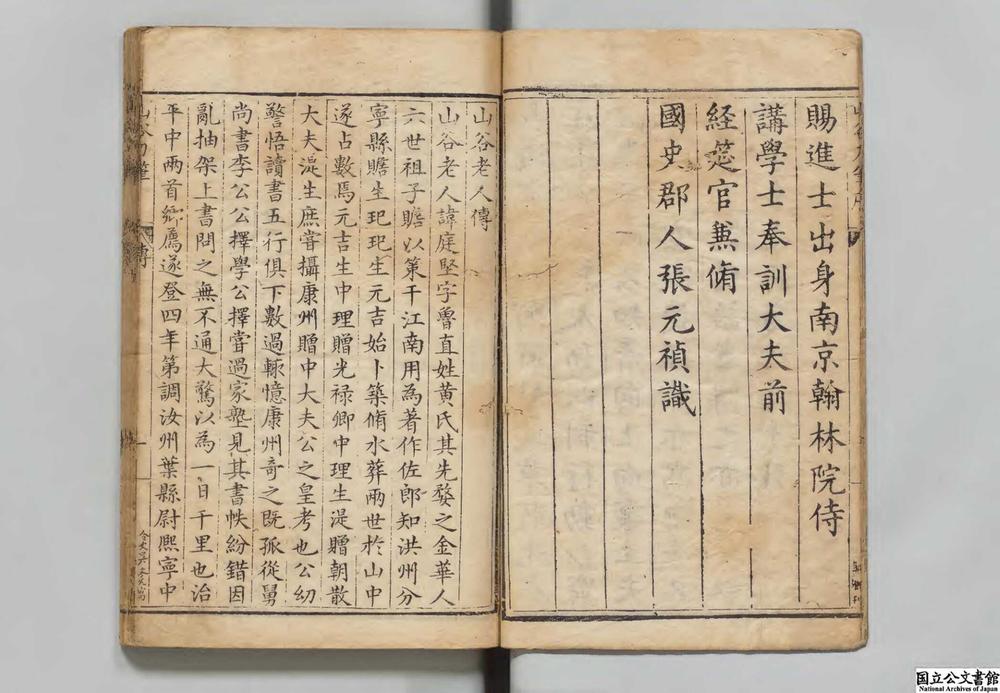 賜進士出身南京翰林院侍
講學士奉訓大夫前
経筵官兼脩
國史郡人張元禎識
山谷老人傳
山谷老人諱庭堅字魯直姓黄氏其先婺之金華人
六世祖子贍以策干江南用為著作佐郎知洪州分
寧縣贍生玘玘生元吉始卜築脩水葬兩世於山中
遂占數焉元吉生中理贈光禄卿中理生湜贈朝散
大夫湜生庶甞攝康州贈中大夫公之皇考也公幼
警悟讀書五行俱下數過輙憶康州竒之既孤從舅
尚書李公公擇學公擇甞過家塾見其書帙紛錯因
亂抽架上書問之無不通大驚以為一日千里也治
平中兩首鄉薦遂登四年第調汝州葉縣尉熈寧中
山谷刀筆
傳
一
国立公文書館
National Archives of Japan